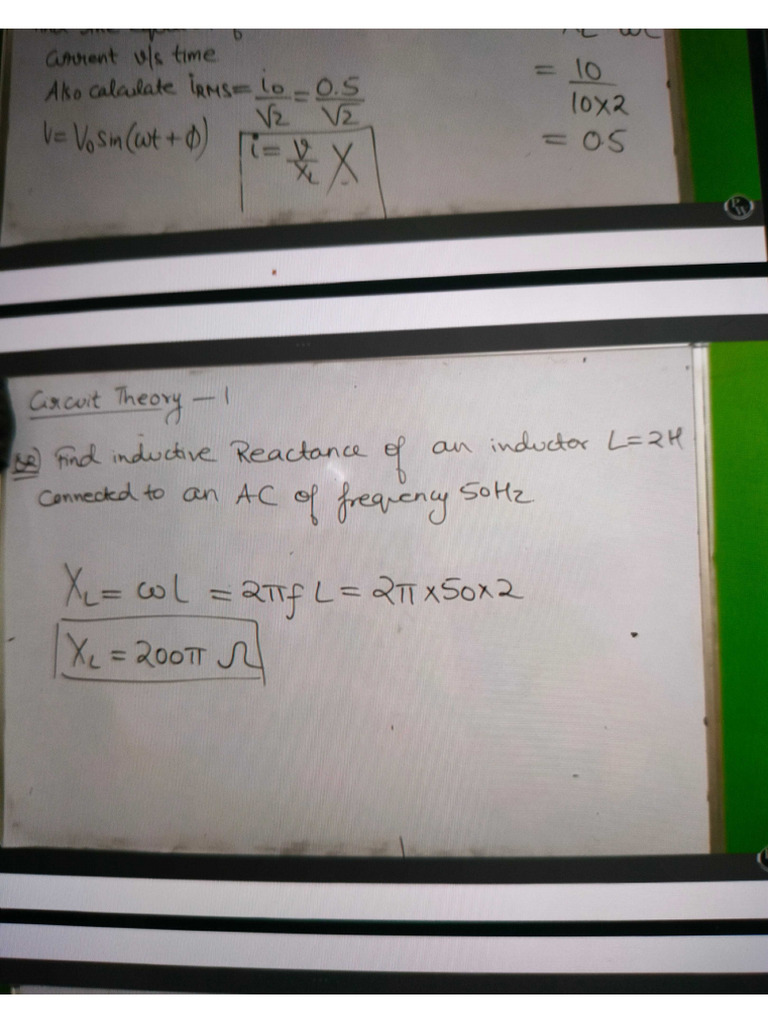 Current v/s time
Also calculate iRMS = i0/√2 = 0.5/√2
V = V0 sin(ωt + ϕ)
i = V/XL X
= 10/10×2
= 0.5
PW
Circuit Theory - 1
Find inductive Reactance of an inductor L=2H
Connected to an AC of freqency 50Hz
XL = ωL = 2πf L = 2π×50×2
XL = 200π Ω